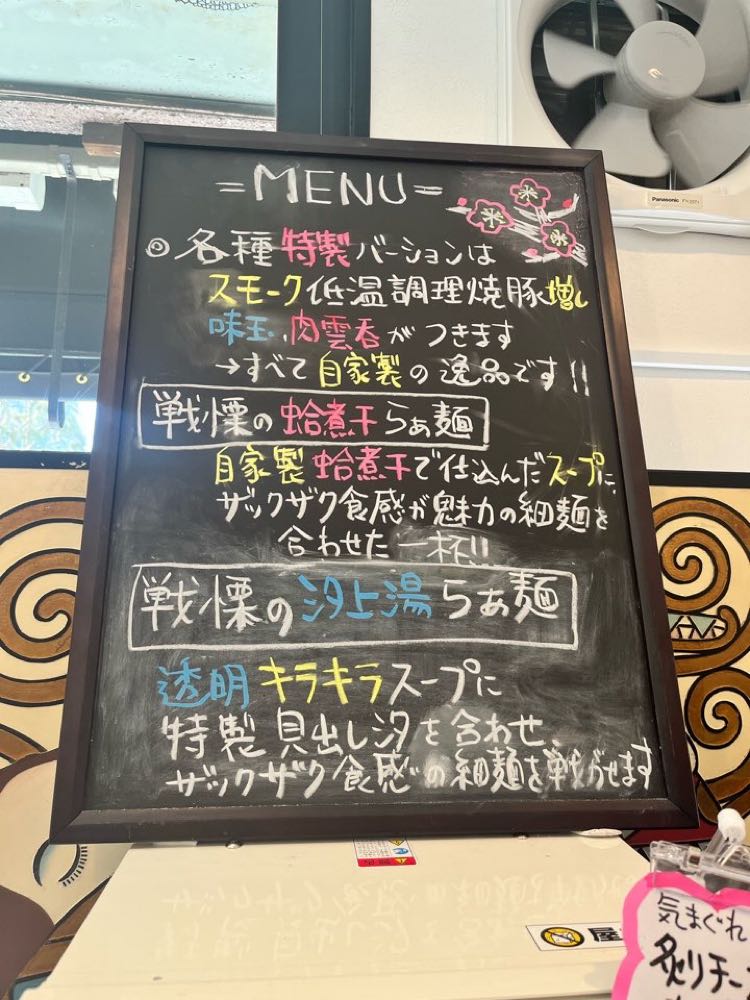 =MENU=
◎各種特製バージョンは
スモーク低温調理焼豚増し
味玉、肉雲呑がつきます
→すべて自家製の逸品です!!
戦慄の蛤煮干らぁ麺
自家製蛤煮干で仕込んだスープに、
ザックザク食感が魅力の細麺を
合わせた一杯!!
戦慄の汐上湯らぁ麺
透明キラキラスープに
特製貝出し汐を合わせ、
ザックザク食感の細麺を戦がせます
Panasonic
屋
気まぐれ
炙りチー